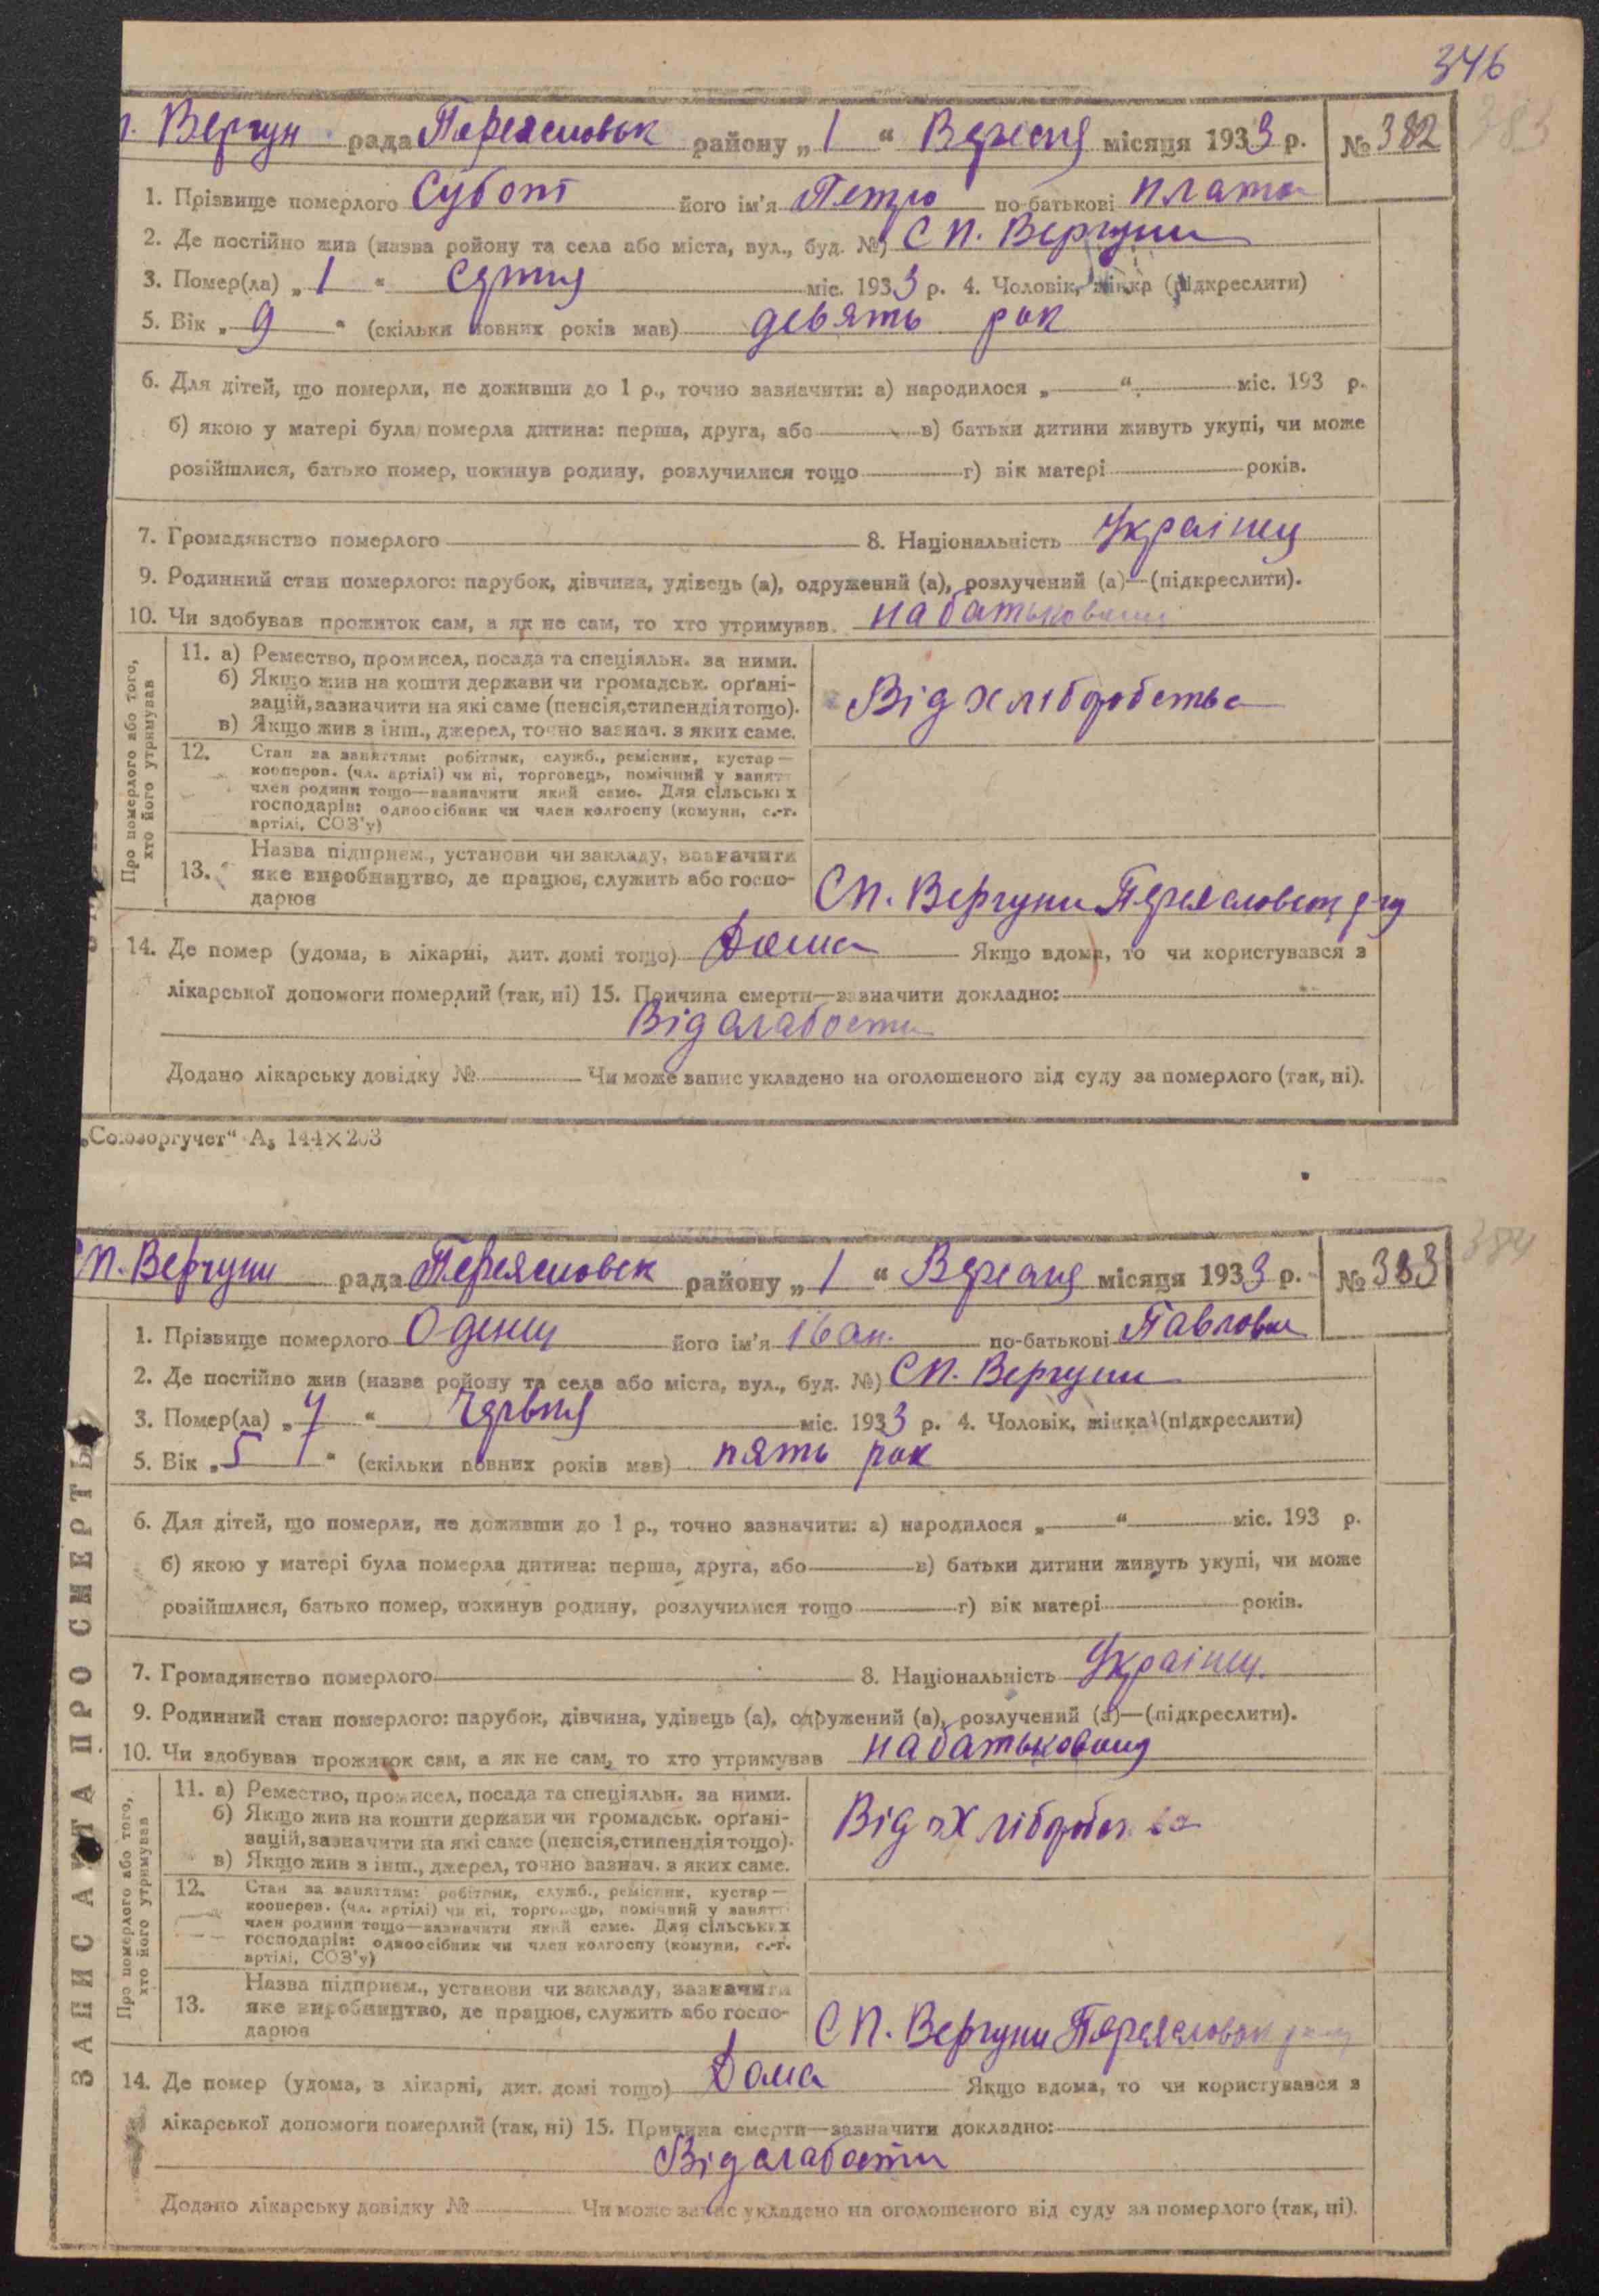 346
383
п. Вергун рада Переясловск району „1“ Вересня місяця 1933 р. № 382
1. Прізвище померлого Субот його ім'я Петро по-батькові Плато
2. Де постійно жив (назва ройону та села або міста, вул., буд. №) С П. Вергуни
3. Помер(ла) „1“ Серпня міс. 1933 р. 4. Чоловік, жінка (підкреслити)
5. Вік „9“ (скільки повних років мав) девять рок
6. Для дітей, що померли, не доживши до 1 р., точно зазначити: а) народилося „ “ міс. 193 р.
б) якою у матері була померла дитина: перша, друга, або в) батьки дитини живуть укупі, чи може
розійшлися, батько помер, покинув родину, розлучилися тощо г) вік матері років.
7. Громадянство померлого 8. Національність Украінец
9. Родинний стан померлого: парубок, дівчина, удівець (а), одружений (а), розлучений (а)—(підкреслити).
10. Чи здобував прожиток сам, а як не сам, то хто утримував на батькован
Про померлого або того,
хто його утримував
11. а) Ремество, промисел, посада та спеціяльн. за ними.
б) Якщо жив на кошти держави чи громадськ. органі-
зацій, зазначити на які саме (пенсія, стипендія тощо).
в) Якщо жив з інш., джерел, точно зазнач. з яких саме.
Від хліборобства
12. Стан за заняттям: робітник, служб., ремісник, кустар—
кооперов. (чл. артілі) чи ні, торговець, помічний у занятт
член родини тощо—зазначити який саме. Для сільських
господарів: одноосібник чи член колгоспу (комуни, с.-г.
артілі, СОЗ'у)
13. Назва підприєм., установи чи закладу, зазначити
яке виробництво, де працює, служить або госпо-
дарює
СП. Вергуни Переясловск р-ну
14. Де помер (удома, в лікарні, дит. домі тощо) Дома Якщо вдома, то чи користувався з
лікарської допомоги померлий (так, ні) 15. Причина смерти—зазначити докладно:
Від слабости
Додано лікарську довідку № Чи може запис укладено на оголошеного від суду за померлого (так, ні).
„Союзоргучет“ А₅ 144×203
384
СП. Вергуни рада Переясловск району „1“ Вересня місяця 1933 р. № 383
1. Прізвище померлого Оденец його ім'я Іван. по-батькові Павлови
2. Де постійно жив (назва ройону та села або міста, вул., буд. №) СП. Вергуни
3. Помер(ла) „7“ Червня міс. 1933 р. 4. Чоловік, жінка (підкреслити)
5. Вік „5“ (скільки повних років мав) пять рок
6. Для дітей, що померли, не доживши до 1 р., точно зазначити: а) народилося „ “ міс. 193 р.
б) якою у матері була померла дитина: перша, друга, або в) батьки дитини живуть укупі, чи може
розійшлися, батько помер, покинув родину, розлучилися тощо г) вік матері років.
7. Громадянство померлого 8. Національність Украінец.
9. Родинний стан померлого: парубок, дівчина, удівець (а), одружений (а), розлучений (а)—(підкреслити).
10. Чи здобував прожиток сам, а як не сам, то хто утримував на батькованя
ЗАПИС АКТА ПРО СМЕРТЬ
Про померлого або того,
хто його утримував
11. а) Ремество, промисел, посада та спеціяльн. за ними.
б) Якщо жив на кошти держави чи громадськ. органі-
зацій, зазначити на які саме (пенсія, стипендія тощо).
в) Якщо жив з інш., джерел, точно зазнач. з яких саме.
Від хліборобства
12. Стан за заняттям: робітник, служб., ремісник, кустар—
кооперов. (чл. артілі) чи ні, торговець, помічний у занятт
член родини тощо—зазначити який саме. Для сільських
господарів: одноосібник чи член колгоспу (комуни, с.-г.
артілі, СОЗ'у)
13. Назва підприєм., установи чи закладу, зазначити
яке виробництво, де працює, служить або госпо-
дарює
СП. Вергуни Переясловск
14. Де помер (удома, в лікарні, дит. домі тощо) Дома Якщо вдома, то чи користувався з
лікарської допомоги померлий (так, ні) 15. Причина смерти—зазначити докладно:
Від слабости
Додано лікарську довідку № Чи може запис укладено на оголошеного від суду за померлого (так, ні).